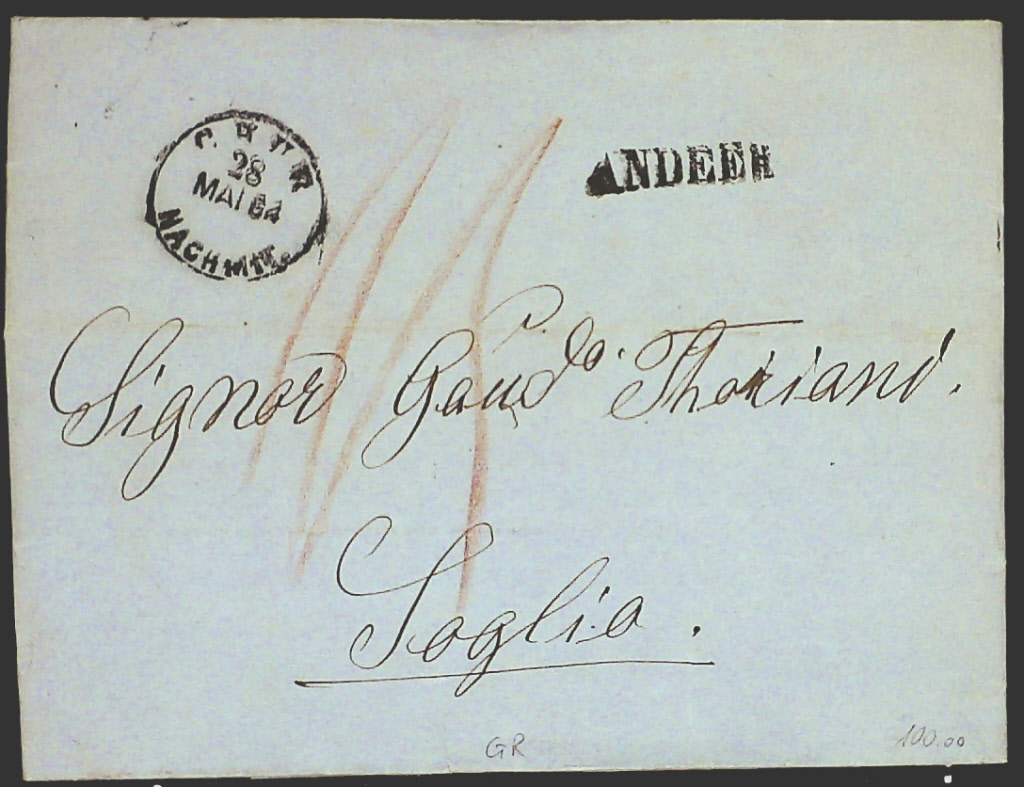 CHUR
28
MAI 64
NACHMITT.
ANDEER
Signor Gaudo. Thoriani.
Soglio.
GR
100.00